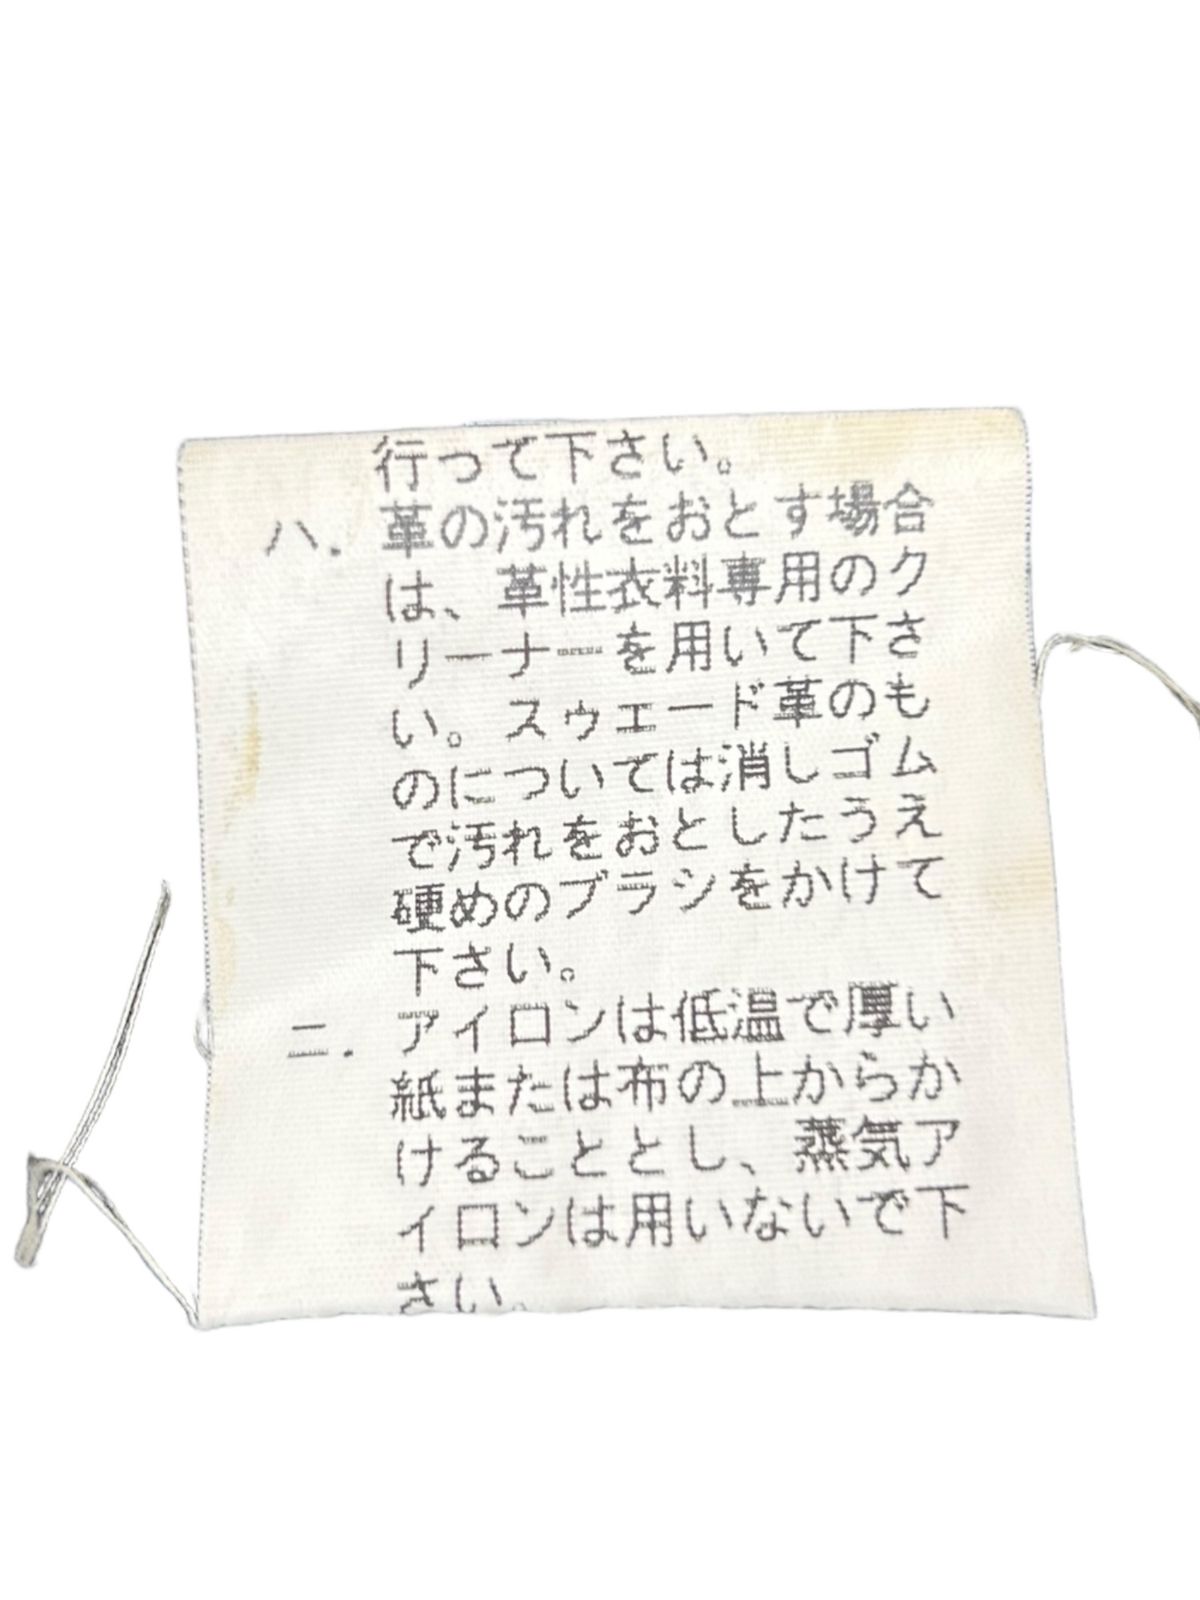 行って下さい。
ハ. 革の汚れをおとす場合
は、革性衣料専用のク
リーナーを用いて下さ
い。スゥエード革のも
のについては消しゴム
で汚れをおとしたうえ
硬めのブラシをかけて
下さい。
ニ. アイロンは低温で厚い
紙または布の上からか
けることとし、蒸気ア
イロンは用いないで下
さい。